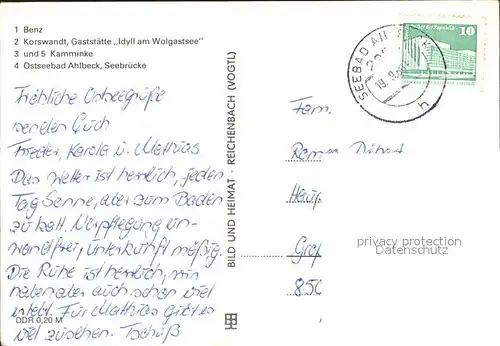 1 Benz
2 Korswandt, Gaststätte „Idyll am Wolgastsee"
3 und 5 Kamminke
4 Ostseebad Ahlbeck, Seebrücke
Fröhliche Ostseegrüße
senden Euch
Frieder, Karola u. Matthias.
Das Wetter ist herrlich, jeden
Tag Sonne, aber zum Baden
zu kalt. Verpflegung ein-
wandfrei, Unterkunft mäßig.
Die Ruhe ist herrlich, wir
haben aber auch schon viel
erlebt. Für Matthias gibt es
viel zu sehen. Tschüß
DDR 0,20 M
BILD UND HEIMAT · REICHENBACH (VOGTL)
SEEBAD AH
19. 9.
h
der Republik
10
Fam.
Haup
Graf
850
privacy protection
Datenschutz